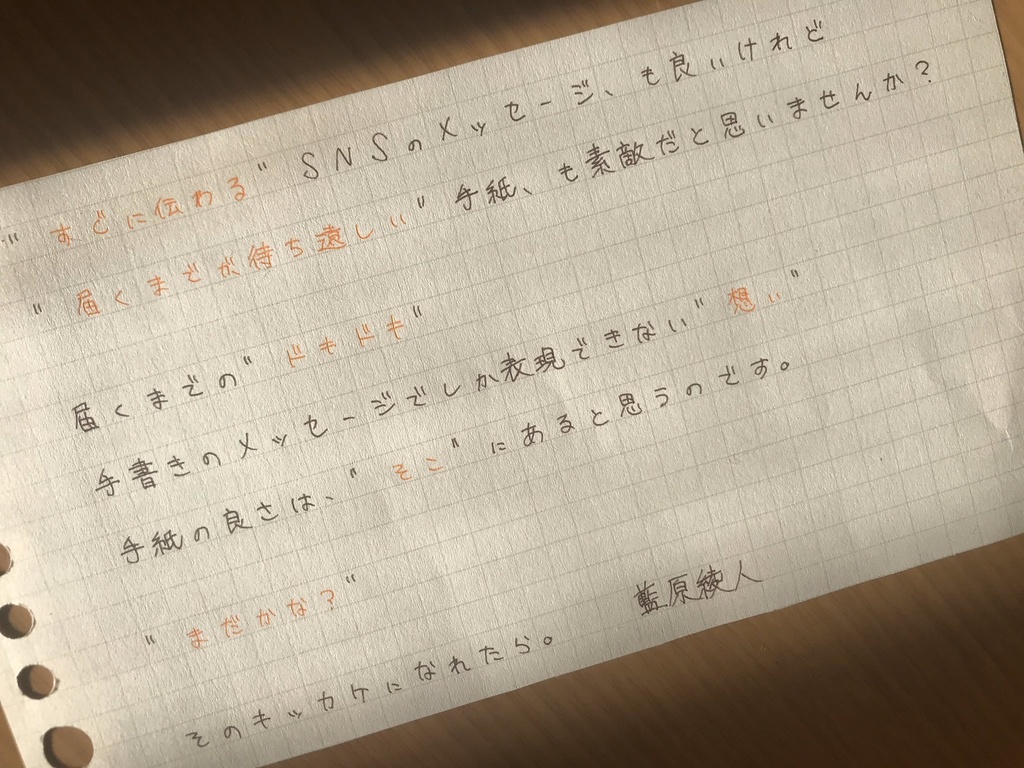 "すぐに伝わる" SNSのメッセージ、も良いけれど
"届くまでが待ち遠しい" 手紙、も素敵だと思いませんか？
届くまでの"ドキドキ"
手書きのメッセージでしか表現できない"想い"
手紙の良さは、"そこ"にあると思うのです。
"まだかな？"
そのキッカケになれたら。
藍原綾人